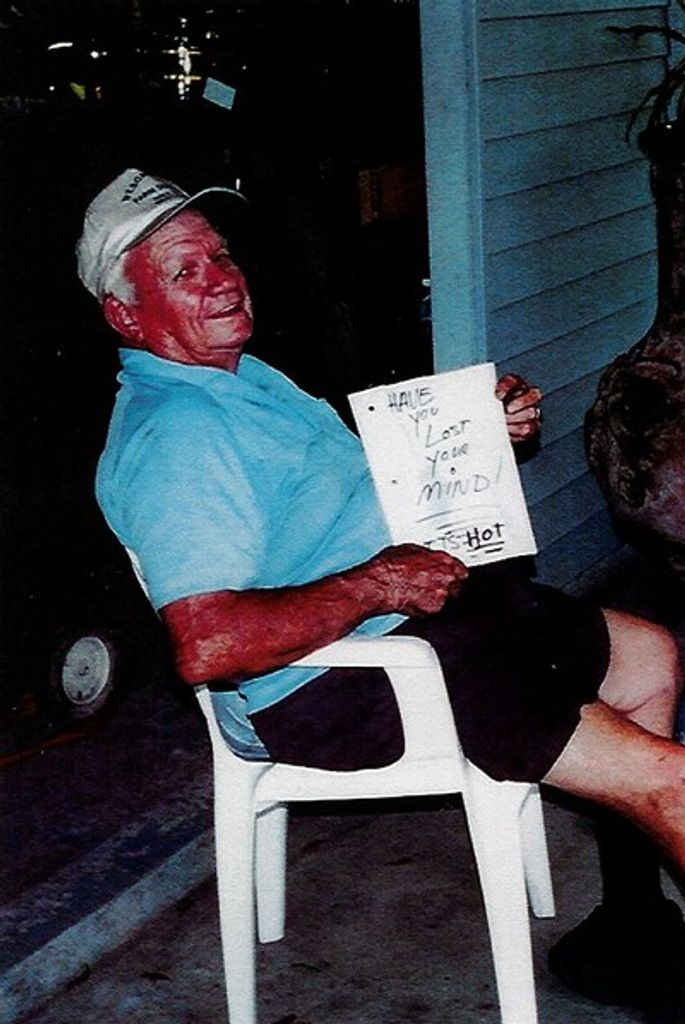 HAVE
you
Lost
your
MIND!
IT'S HOT